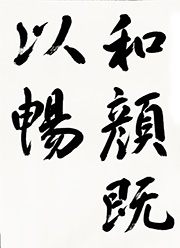 和顔既
以暢